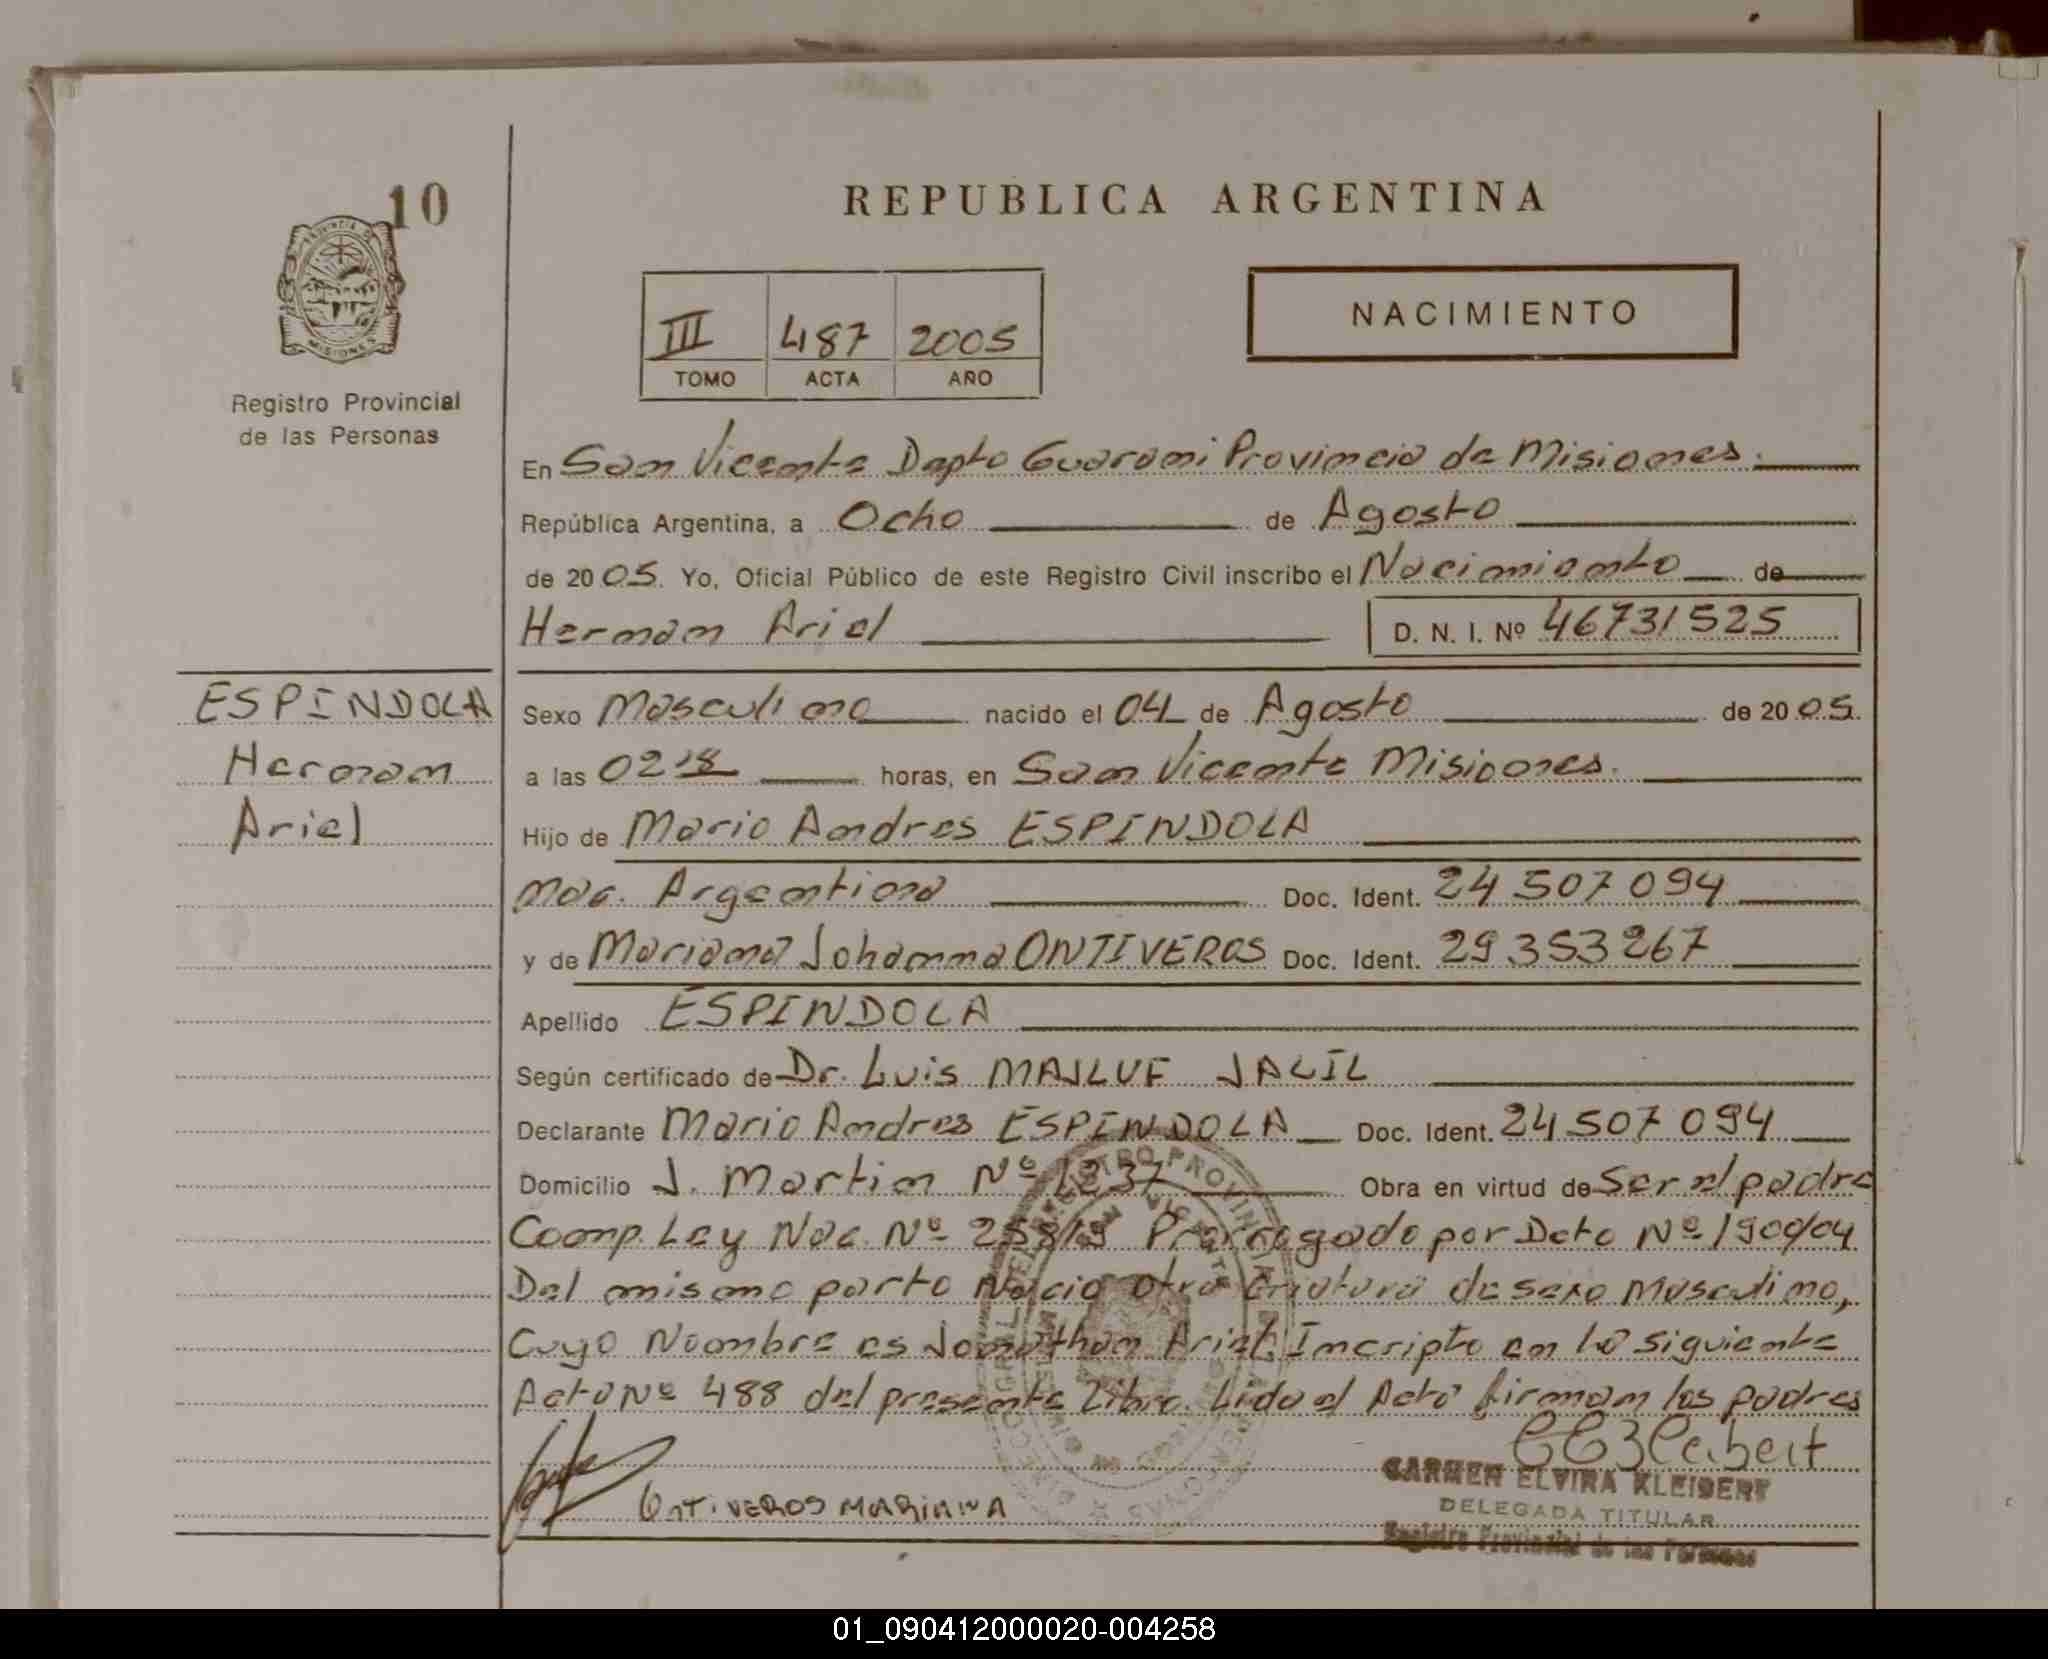 10
REPUBLICA ARGENTINA
PROVINCIA DE
MISIONES
Registro Provincial
de las Personas
III 487 2005
TOMO ACTA AÑO
NACIMIENTO
En San Vicente Dapto Guarani Provincia de Misiones.
República Argentina, a Ocho de Agosto
de 2005. Yo, Oficial Público de este Registro Civil inscribo el Nacimiento de
Hernan Ariel D. N. I. Nº 46731525
ESPINDOLA
Hernan
Ariel
Sexo Masculino nacido el 04 de Agosto de 2005.
a las 02 18 horas, en San Vicente Misiones.
Hijo de Mario Andres ESPINDOLA
nac. Argentina Doc. Ident. 24 507 094
y de Mariana Johanna ONTIVEROS Doc. Ident. 29.353 267
Apellido ESPINDOLA
Según certificado de Dr. Luis MAJLUF JALIL
Declarante Mario Andres ESPINDOLA Doc. Ident. 24 507 094
Domicilio J. Martin Nº 1237 Obra en virtud de ser el padre
Comp. Ley Nac. Nº 25819 Prorrogado por Dcto Nº 1900/04
Del mismo parto Nacio otra Criatura de sexo Masculino,
Cuyo Nombre es Jonathan Ariel. Inscripto en la siguiente
Acta Nº 488 del presente Libro. Lida el Acta firman los padres
OnTiVEROS MARiANA
CARMEN ELVIRA KLEIBERT
DELEGADA TITULAR
Registro Provincial de las Personas
01_090412000020-004258